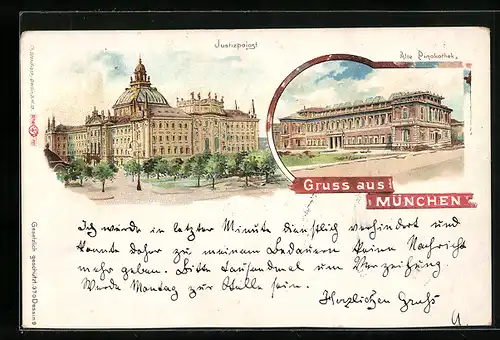 Justizpalast
Alte Pinakothek.
Gruss aus
MÜNCHEN
Ich wurde in letzter Minute dienstlich verhindert und
konnte daher zu meinem Bedauern keine Nachricht
mehr geben. Bitte tausendmal um Verzeihung.
Werde Montag zur Stelle sein.
Herzlichen Gruß
Gesetzlich geschützt 370 Dessin 9